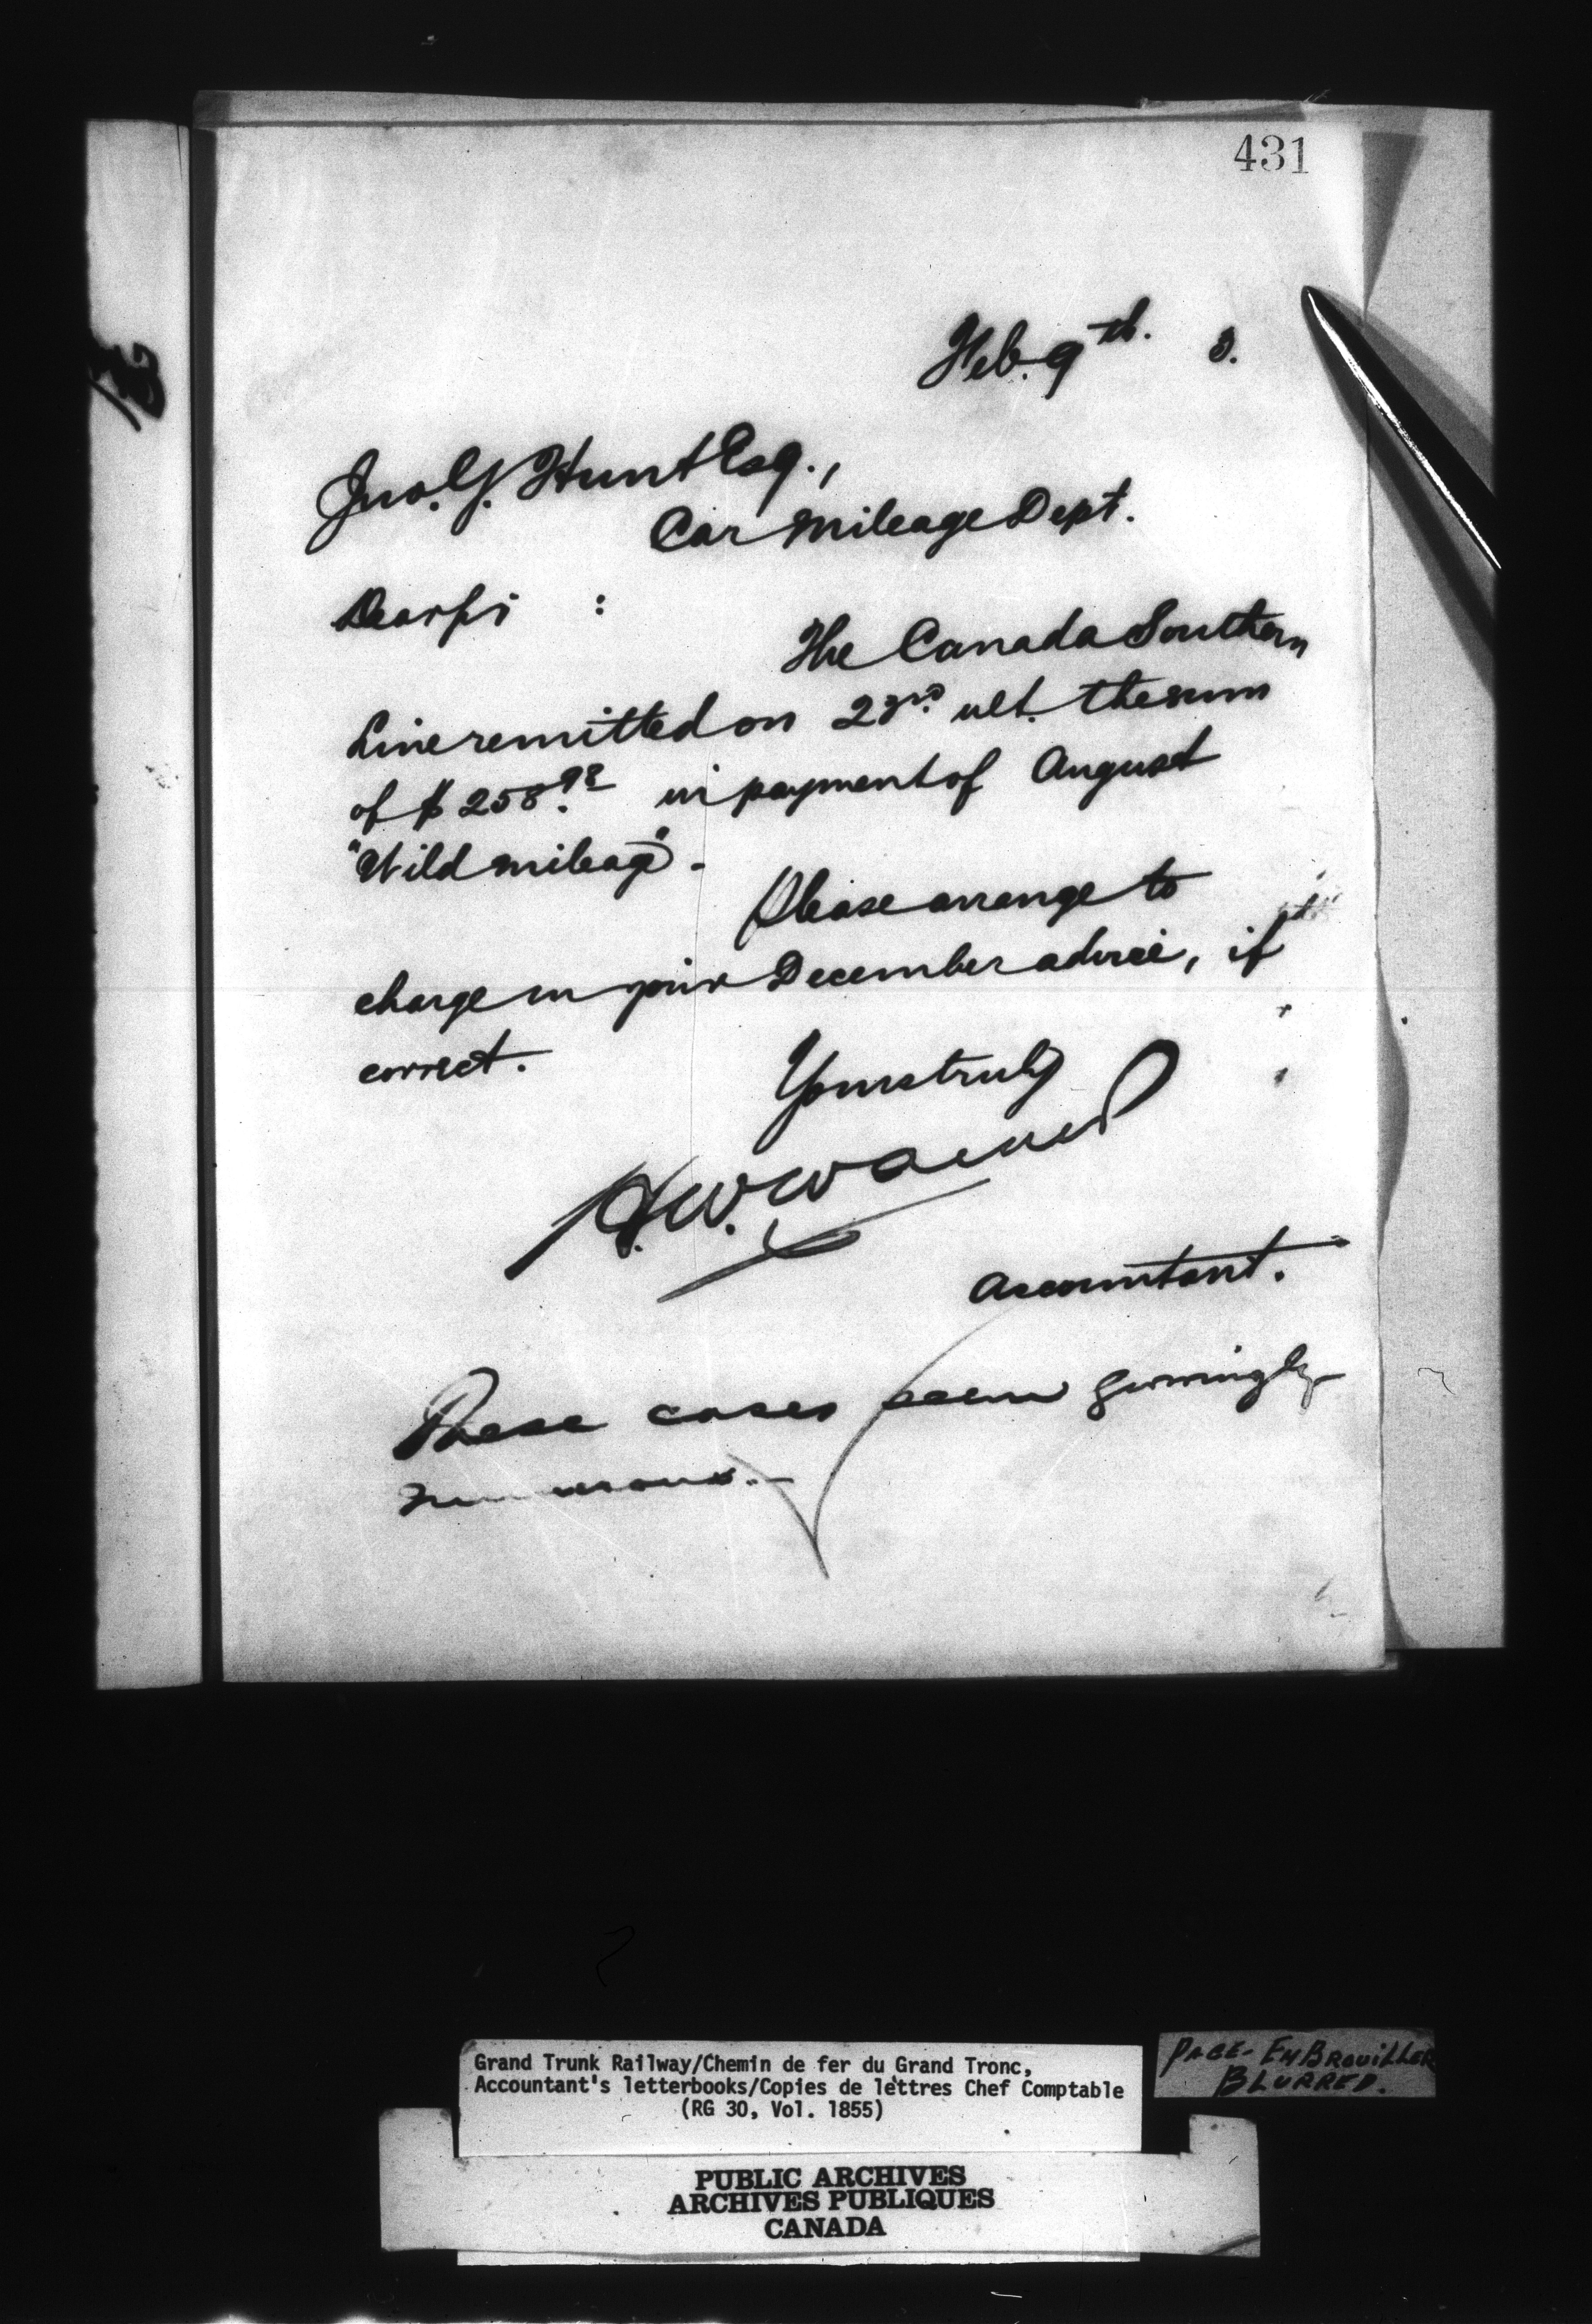 431
Feb. 9th. 3.
Jno. Y. Hunt Esq.,
Car Mileage Dept.
Dear Sir :
The Canada Southern
Line remitted on 23rd ult. the sum
of $258.92 in payment of August
"Wild mileage".
Please arrange to
charge in your December advice, if
correct.
Yours truly
H.W. Walker
Accountant.
These cases seem
numerous.
Grand Trunk Railway/Chemin de fer du Grand Tronc,
Accountant's letterbooks/Copies de lettres Chef Comptable
(RG 30, Vol. 1855)
PAGE - EMBROUILLER
BLURRED.
PUBLIC ARCHIVES
ARCHIVES PUBLIQUES
CANADA